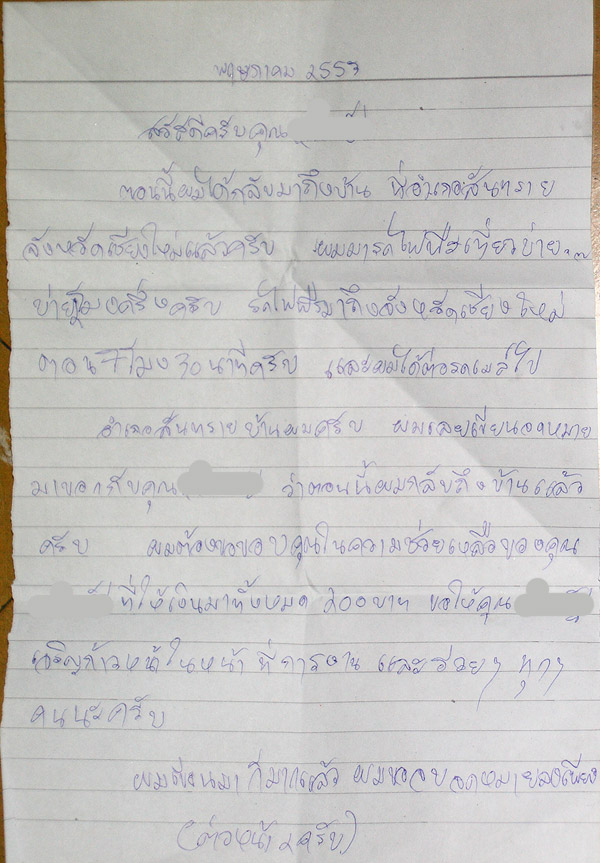 พฤษภาคม 2557
สวัสดีครับคุณ
ตอนนี้ผมได้กลับมาถึงบ้าน ที่อำเภอสันทราย
จังหวัดเชียงใหม่แล้วครับ ผมมารถไฟฟรีเที่ยวบ่าย
บ่ายโมงครึ่งครับ รถไฟฟรีมาถึงจังหวัดเชียงใหม่
ตอน 7 โมง 30 นาทีครับ และผมได้ต่อรถเมล์ไป
อำเภอสันทรายบ้านผมครับ ผมเลยเขียนจดหมาย
มาบอกกับคุณ ว่าตอนนี้ผมกลับถึงบ้านแล้ว
ครับ ผมต้องขอขอบคุณในความช่วยเหลือของคุณ
ที่ให้เงินมาทั้งหมด 200 บาท ขอให้คุณ
เจริญก้าวหน้าในหน้าที่การงาน และรวยๆ ทุกๆ
คนนะครับ
ผมเขียนมาก็มากแล้ว ผมขอจบจดหมายลงเพียง
(ต่อหน้า 2 ครับ)